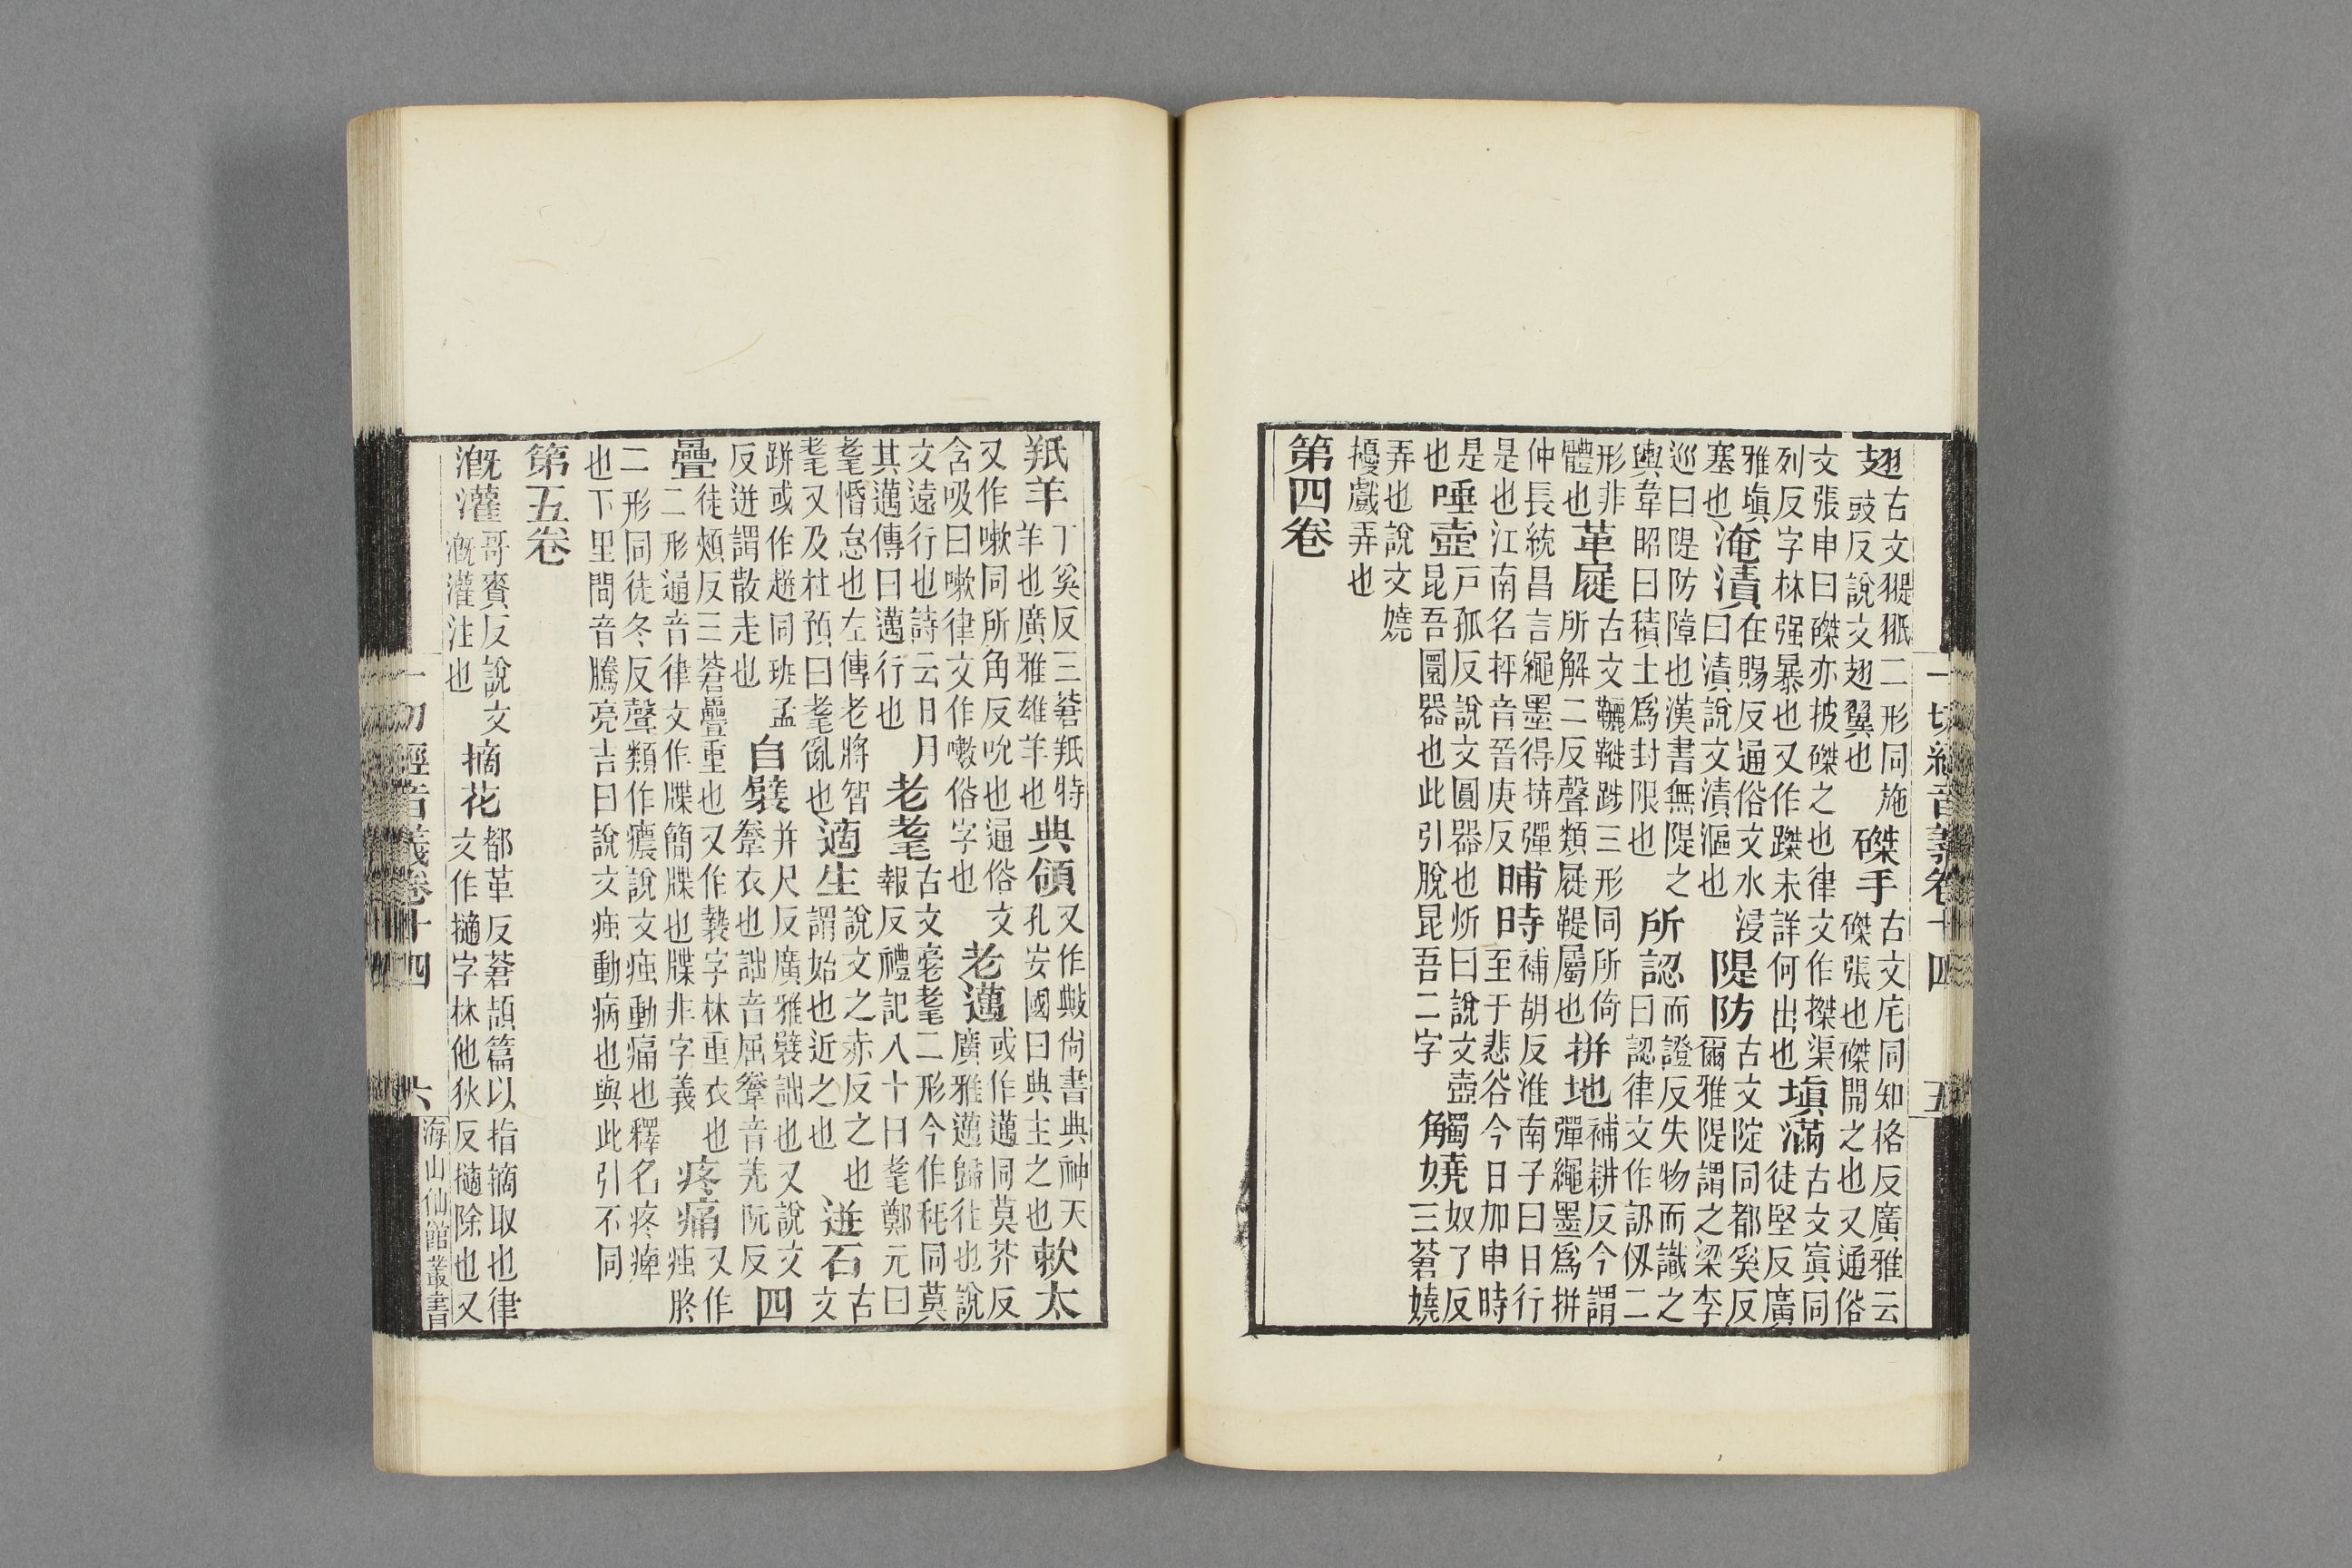 一切經音義卷十四 五
翅古文翨𦐊二形同施豉反說文翅翼也磔手古文㡯同知格反廣雅云磔張也磔開之也又通俗
文張申曰磔亦披磔之也律文作搩渠列反字林强暴也又作蹂未詳何出也塡滿古文窴同徒堅反廣
雅塡塞也淹漬在賜反通俗文水浸曰漬說文漬漚也隄防古文䧑同都奚反爾雅隄謂之梁李
巡曰隄防障也漢書無隄之輿韋昭曰積土爲封限也所認而證反失物而識之曰認律文作訒仭二
形非體也革屣古文三形同所倚所解二反聲類屣鞮屬也拼地補耕反今謂彈繩墨爲拼
仲長統昌言繩墨得拼彈是也江南名抨音普庚反晡時補胡反淮南子曰日行至于悲谷今日加申時
是也唾壺戸孤反說文圓器也炘曰說文壺昆吾圜器也此引脫昆吾二字觸嬈奴了反三蒼嬈
弄也說文嬈擾戲弄也
第四卷
羝羊丁奚反三蒼羝特羊也廣雅雄羊也典領又作敟尚書典神天孔安國曰典主之也欶太
又作嗽同所角反吮也通俗文含吸曰嗽律文作㘛俗字也老邁或作同莫芥反廣雅邁歸往也說
文遠行也詩云日月其邁傳曰邁行也老耄古文二形今作秏同莫報反禮記八十曰耄鄭元曰
耄惛怠也左傳老將智耄又及杜預曰耄亂也適生說文之赤反之也謂始也近之也迸石古文
跰或作趙同班孟反迸謂散走也自襞并尺反廣雅襞詘也又說文韏衣也詘音屈韏音羌阮反四
疊徒頰反三蒼疊重也又作褺字林重衣也二形通音律文作牒簡牒也牒非字義疼痛又作痋㽵
二形同徒冬反聲類作癑說文痋動痛也釋名疼痺也下里間音騰亮吉曰說文痋動病也與此引不同
第五卷
溉灌哥賚反說文溉灌注也摘花都革反蒼頡篇以指摘取也律文作擿字林他狄反擿除也又
一切經音義卷十四 六 海山仙館叢書